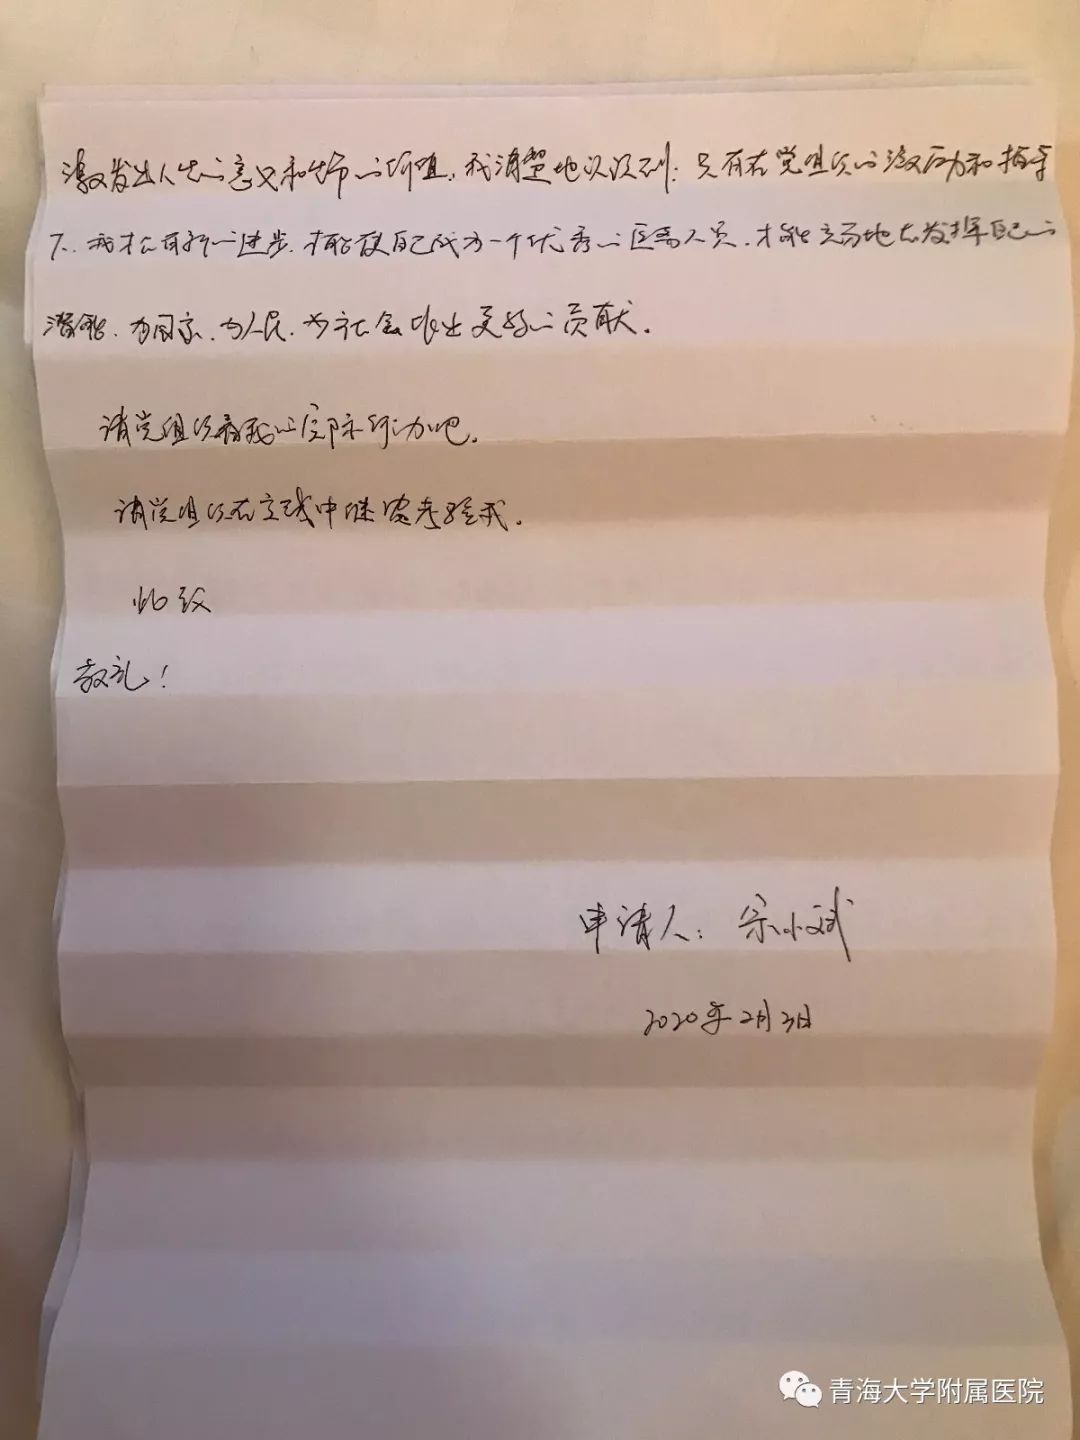 激发出人生的意义和生命的价值。我清楚地认识到：只有在党组织的激励和指导
下，我才会有新的进步，才能使自己成为一个优秀的医务人员，才能充分地去发挥自己的
潜能，为国家，为人民，为社会作出更好的贡献。
请党组织看我的实际行动吧。
请党组织在实践中继续考验我。
此致
敬礼！
申请人：宋小斌
2020年2月3日
青海大学附属医院